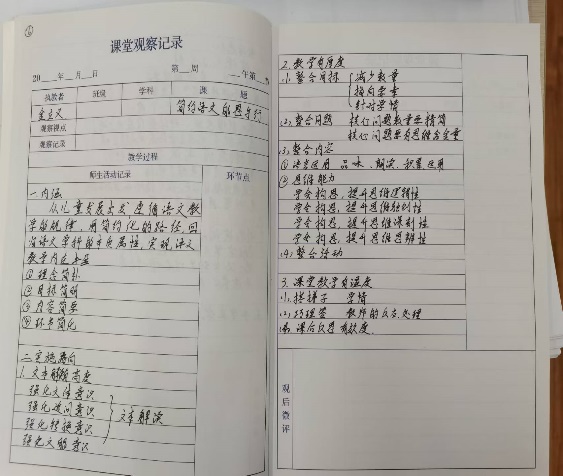 课堂观察记录
20 年 月 日 第 周 午第 节
执教者 班级 学科 课题
简约语文的思与行
观察视点
观察记录
教学过程
师生活动记录 环节点
一.内涵
从儿童发展出发,遵循语文教
学的规律,用简约化的路径,回
归语文学科的本真属性,实现语文
教学内在丰盈
①理念简朴
②目标简明
③内容简要
④环节简化
二.实施意向
1.文本解读有高度
强化文体意识
强化追问意识
强化转换意识
强化文眼意识
文本解读
2.教学有厚度
(1)整合目标 减少数量
指向学童
针对学情
(2)整合问题 核心问题数量要精简
核心问题要有思维含金量
(3)整合内容
①语言运用 品味、积累运用
②思维能力
学会构思,提升思维逻辑性
学会构思,提升思维独到性
学会构思,提升思维深刻性
学会构思,提升思维思辨性
(4)整合活动
3.课堂教学有温度
(1)搭梯子 学情
(2)巧理答 教师的反应处理
(3)课后反思 有效度
观后微评